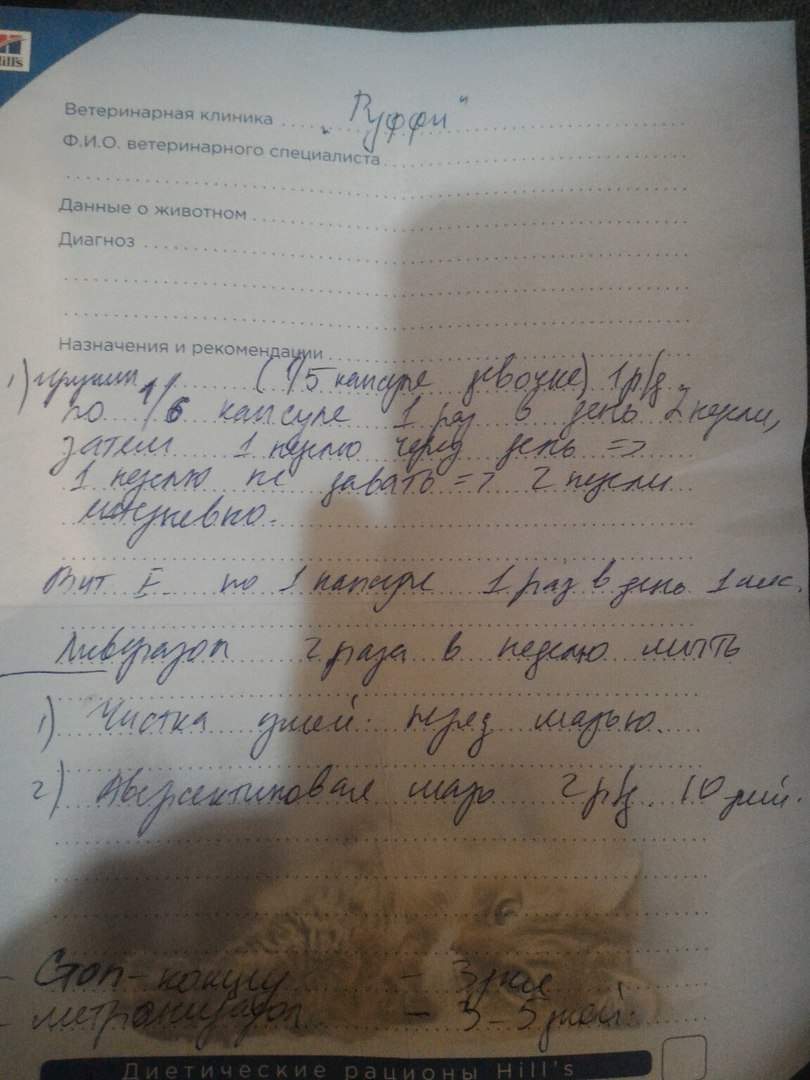 Hill's
Ветеринарная клиника "Руффи"
Ф.И.О. ветеринарного специалиста
Данные о животном
Диагноз
Назначения и рекомендации
1) (1/5 капсуле девочке) 1 р/д
по 1/6 капсуле 1 раз в день 2 недели,
затем 1 неделю через день =>
1 неделю не давать => 2 недели
ежедневно.
Вит E по 1 капсуле 1 раз в день 1 мес.
2 раза в неделю мыть
1) Чистка ушей перед мазью.
2) Аверсектиновая мазь 2 р/д 10 дней.
- Стоп-кокцид - 3 дня
- метронидазол - 3-5 дней.
Диетические рационы Hill's